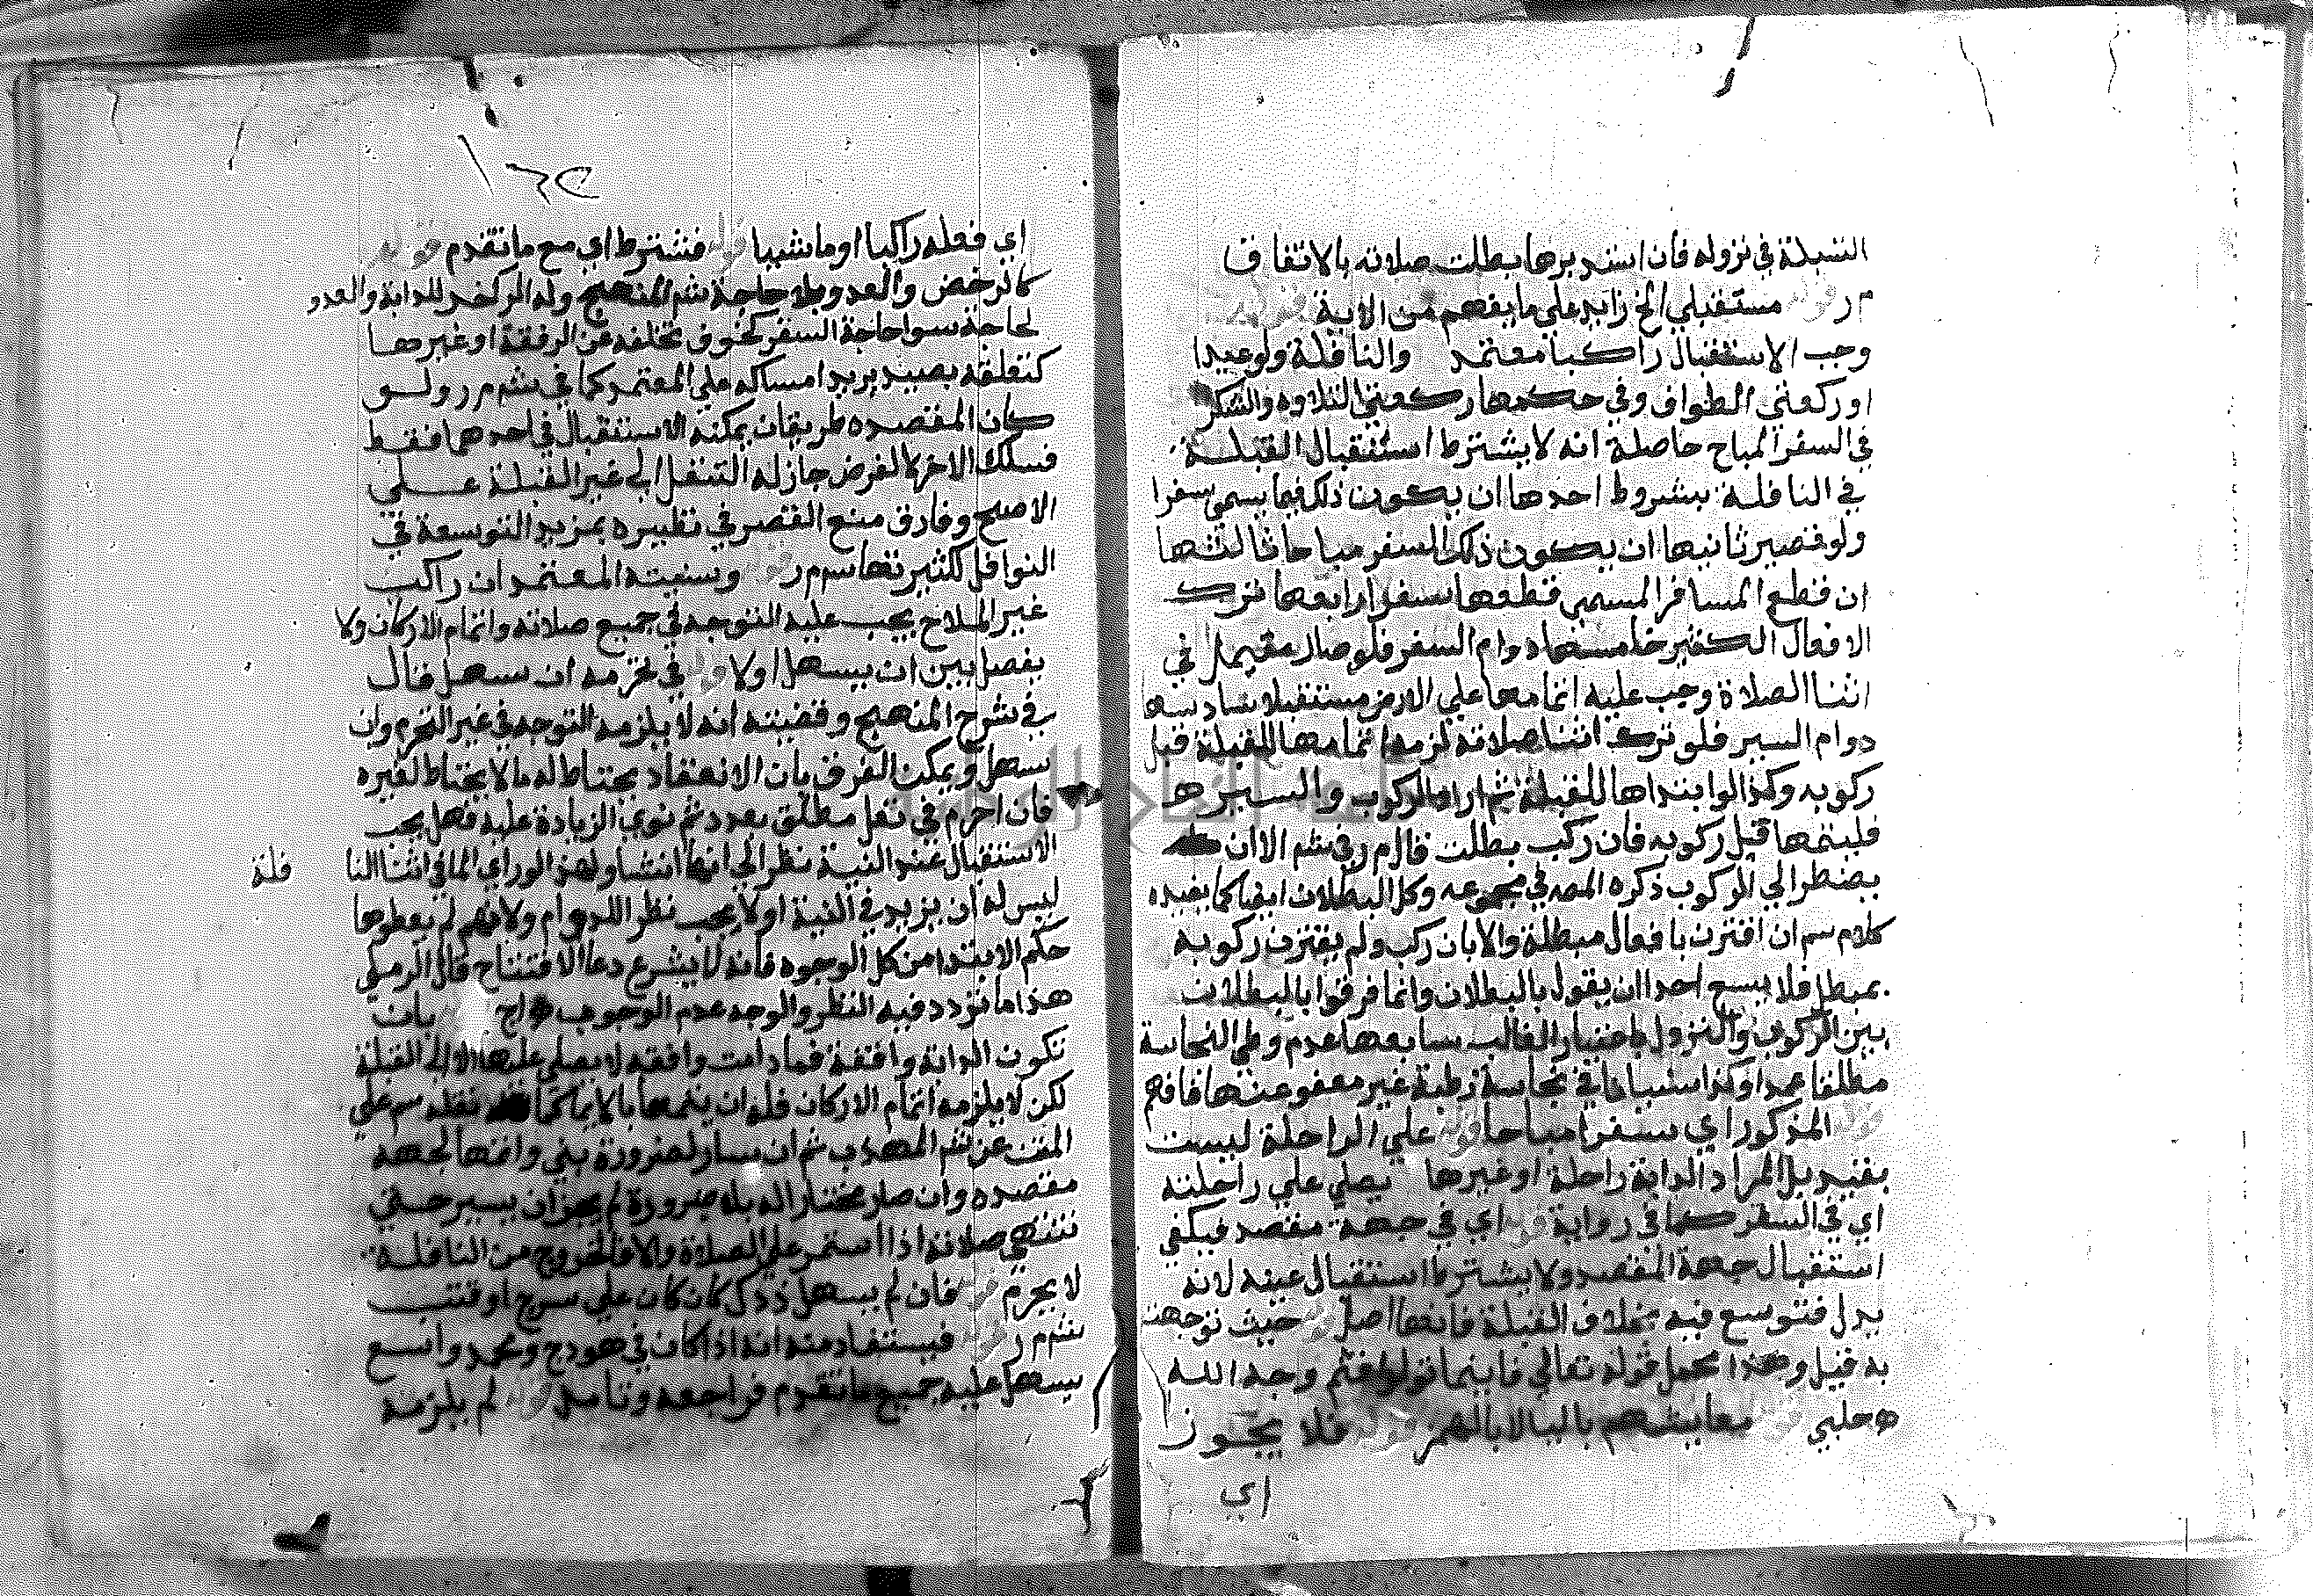 القبلة في نزوله فان استدبرها بطلت صلاته بالاتفاق
م ر قوله مستقبلي الخ زايد علي ما يفهم من الاية قوله
وجب الاستقبال راكبا معتمد والنافلة ولو عيدا
او ركعتي الطواف وفي حكمها ركعتي التلاوه والشكر
في السفر المباح حاصله انه لا يشترط استقبال القبلة
في النافلة بشروط احدها ان يكون ذلك فيما يسمي سفرا
ولو قصير ثانيها ان يكون ذلك السفر مباحا ثالثها
ان قطع المسافر المسمي قطعها سفرا رابعها ترك
الافعال الكثير خامسها دوام السفر فلو صار مقيما في
اثنا الصلاة وجب عليه اتمامها علي الارض مستقبلا سادسها
دوام السير فلو ترك اثنا صلاته لزمه اتمامها للقبلة قبل
ركوبه وكذا لو ابتداها للقبلة ثم اراد الركوب والسير
فليتمها قبل ركوبه فان ركب بطلت قال م ر في شم الا ان
يضطر الي الركوب ذكره المص في مجموعه وكل البطلان ايضا كما يفيده
كلام سم ان اقترن بافعال مبطلة والا بان ركب ولم يقترن ركوبه
بمبطل فلا يسع احدا ان يقول بالبطلان وانما فرقوا بالبطلان
بين الركوب والنزول باعتبار الغالب سابعها عدم وطي النجاسة
مطلقا عمدا وكذا نسيانا في نجاسة رطبة غير معفو عنها فافهم
قوله المذكور اي سفرا مباحا قوله علي الراحلة ليست
بقيد بل المراد الدابة راحلة او غيرها يصلي علي راحلته
اي في السفر كما في رواية قوله اي في جهة مقصد فيكفي
استقبال جهة المقصد ولا يشترط استقبال عينه لانه
بدل فتوسع فيه بخلاف القبلة فانها اصل قوله حيث توجهت
به قيل وهذا محمل قوله تعالي فاينما تولوا فثم وجه الله
ه حلبي قوله معايشهم باليا لا بالهمز قوله فلا يجوز
اي
١٦٢
اي فعله راكبا او ماشيا قوله فشترط اي مع ما تقدم قوله
كالركض والعدو بلا حاجة شم المنهج وله الركض للدابة والعدو
لحاجة سوا حاجة السفر كخوف تخلفه عن الرفقة او غيرها
كتعلقه بصيد يريد امساكه علي المعتمد كما في شم م ر ولو
كان المقصده طريقان يمكنه الاستقبال في احدهما فقط
فسلك الاخر لا لغرض جاز له التنفل الي غير القبلة علي
الاصح وفارق منع القصر في نظيره بمزيد التوسعة في
النوافل لكثيرتها شم م ر قوله وسنيته المعتمد ان راكب
غير الملاح يجب عليه التوجه في جميع صلاته واتمام الاركان ولا
يفصل بين ان يسهل او لا قوله في تحرمه ان سهل قال
في شرح المنهج وقضيته انه لا يلزمه التوجه في غير التحرم وان
سهل ويمكن الفرق بان الانعقاد يحتاط له ما لا يحتاط لغيره
فان احرم في نفل مطلق بعدد ثم نوي الزيادة عليه فهل يجب
الاستقبال عند النية نظر الي انها انشا ولهذا لو راي الما في اثنا النا
فلة
ليس له ان يزيد في النية او لا يجب نظر اللدوام ولانهم لم يعطوها
حكم الابتدا من كل الوجوه فانه لا يشرع دعا الافتتاح قال الرملي
هذا ما تردد فيه النظر والوجه عدم الوجوب ه اج بان
تكون الدابة واقفة فما دامت واقفه لا يصلي عليها الا الي القبلة
لكن لا يلزمه اتمام الاركان فله ان يتمها بالايما كما نقله سم علي
المتن عن شم المهذب ثم ان سار لضرورة بني وافتها لجهة
مقصده وان صار مختارا له بلا ضرورة لم يجز ان يسير حتي
تنتهي صلاته اذا استمر علي الصلاة والا فالخروج من النافلة
لا يحرم قوله فان لم يسهل ذلك كان كان علي سرج او قتب
شم م ر قوله فيستفاد منه انه اذا كان في هودج ومحمد واسع
يسهل عليه جميع ما تقدم فراجعه وتامل قوله لم يلزمه